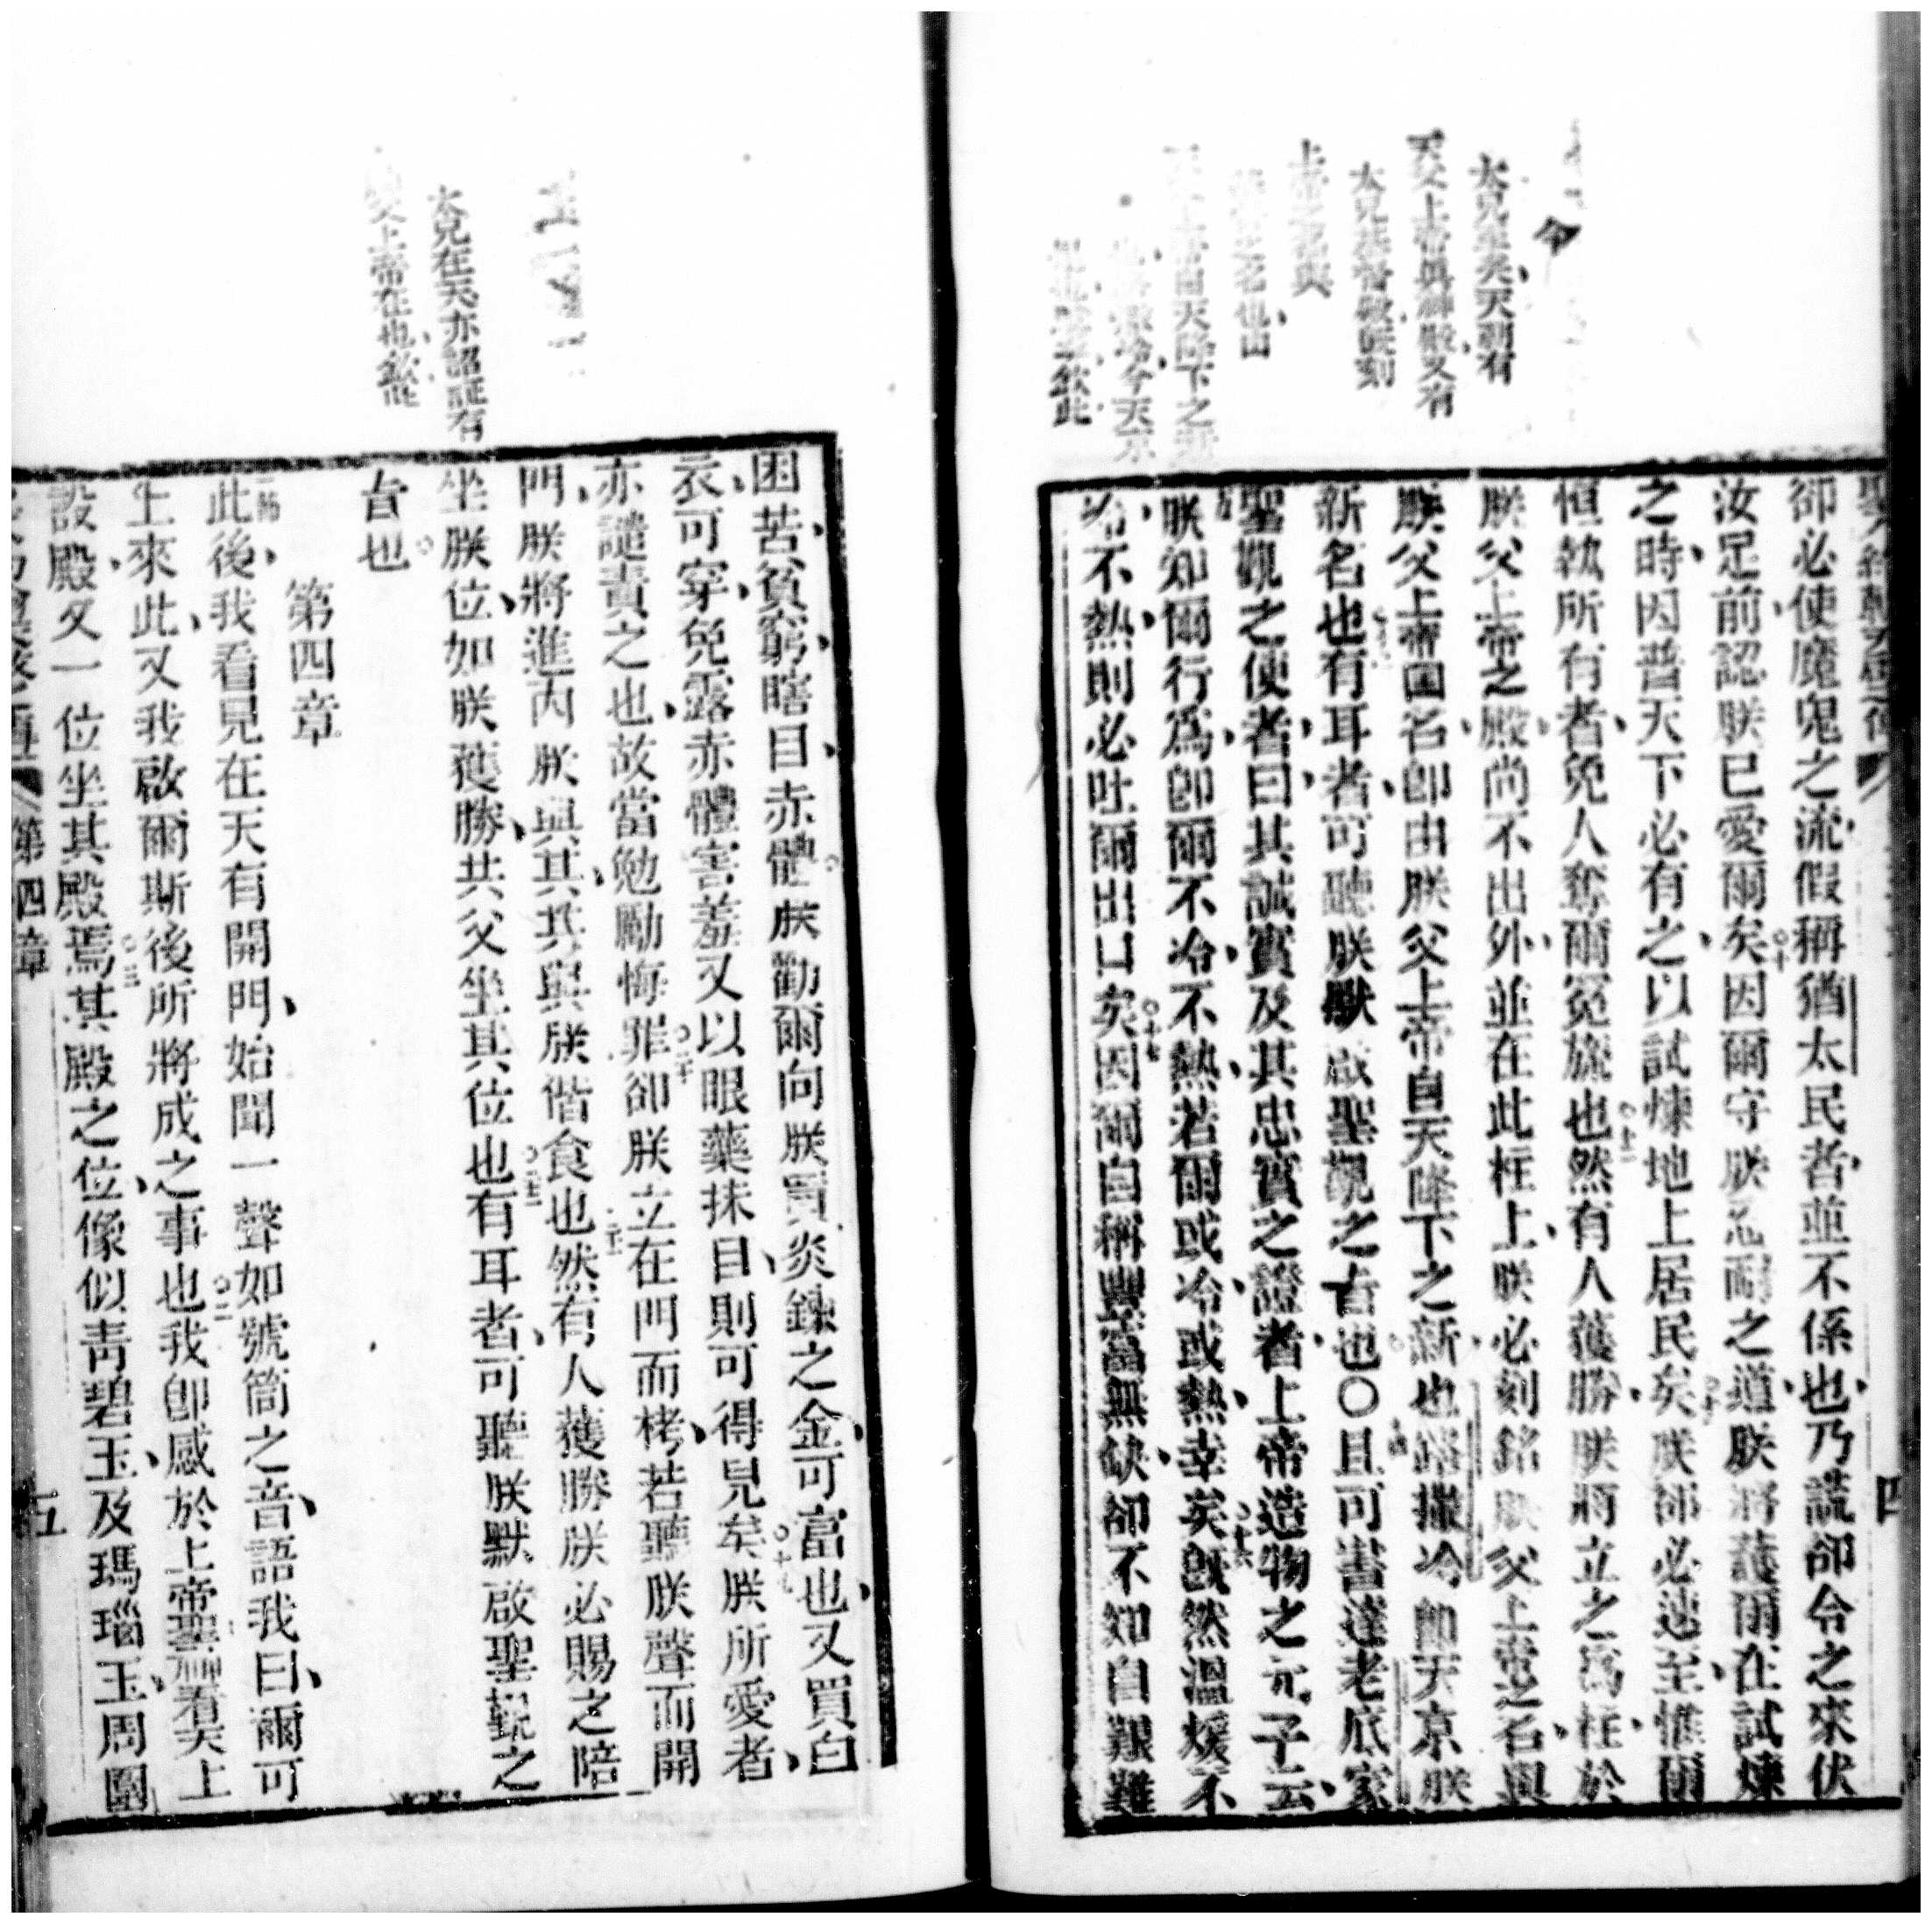 太兄至矣天朝有
天父上帝眞神殿又有
太兄基督殿旣刻
上帝之名與
之名也
上帝自天降下之
冷今天京
欽此
卻必使魔鬼之流假稱猶太民者並不係也乃謊卻令之來伏
汝足前認朕已愛爾矣因爾守朕忍耐之道朕將護爾在試煉
之時因普天下必有之以試煉地上居民矣朕卻必速至惟爾
恒執所有者免人奪爾冕旒也然有人獲勝朕將立之爲柱於
朕父上帝之殿尚不出外並在此柱上朕必刻銘朕父上帝之名與
朕父上帝国名卽由朕父上帝自天降下之新也 撒冷卽天京朕
新名也有耳者可聽朕默啟聖親之旨也〇且可書達老底家
聖親之使者曰其誠實及其忠實之證者上帝造物之元子云
朕知爾行爲卽爾不冷不熱若爾或冷或熱幸矣旣然溫煖不
冷不熱則必吐爾出口矣因爾自稱豐富無缺卻不知自艱難
太兄在天亦詔証有
父上帝在也欽此
困苦貧窮瞎目赤體朕勸爾向朕買炎鍊之金可富也又買白
衣可穿免露赤體害羞又以眼藥抹目則可得見矣朕所愛者
亦譴責之也故當勉勵悔罪卻朕立在門而栲若聽朕聲而開
門朕將進內朕與其其與朕偕食也然有人獲勝朕必賜之陪
坐朕位如朕獲勝共父坐其位也有耳者可聽朕默啟聖親之
旨也
第四章
此後我看見在天有開門始聞一聲如號筒之音語我曰爾可
上來此又我啟爾斯後所將成之事也我卽感於上帝聖神看天上
設殿又一位坐其殿焉其殿之位像似靑碧玉及瑪瑙玉周圍
第四章
五
四